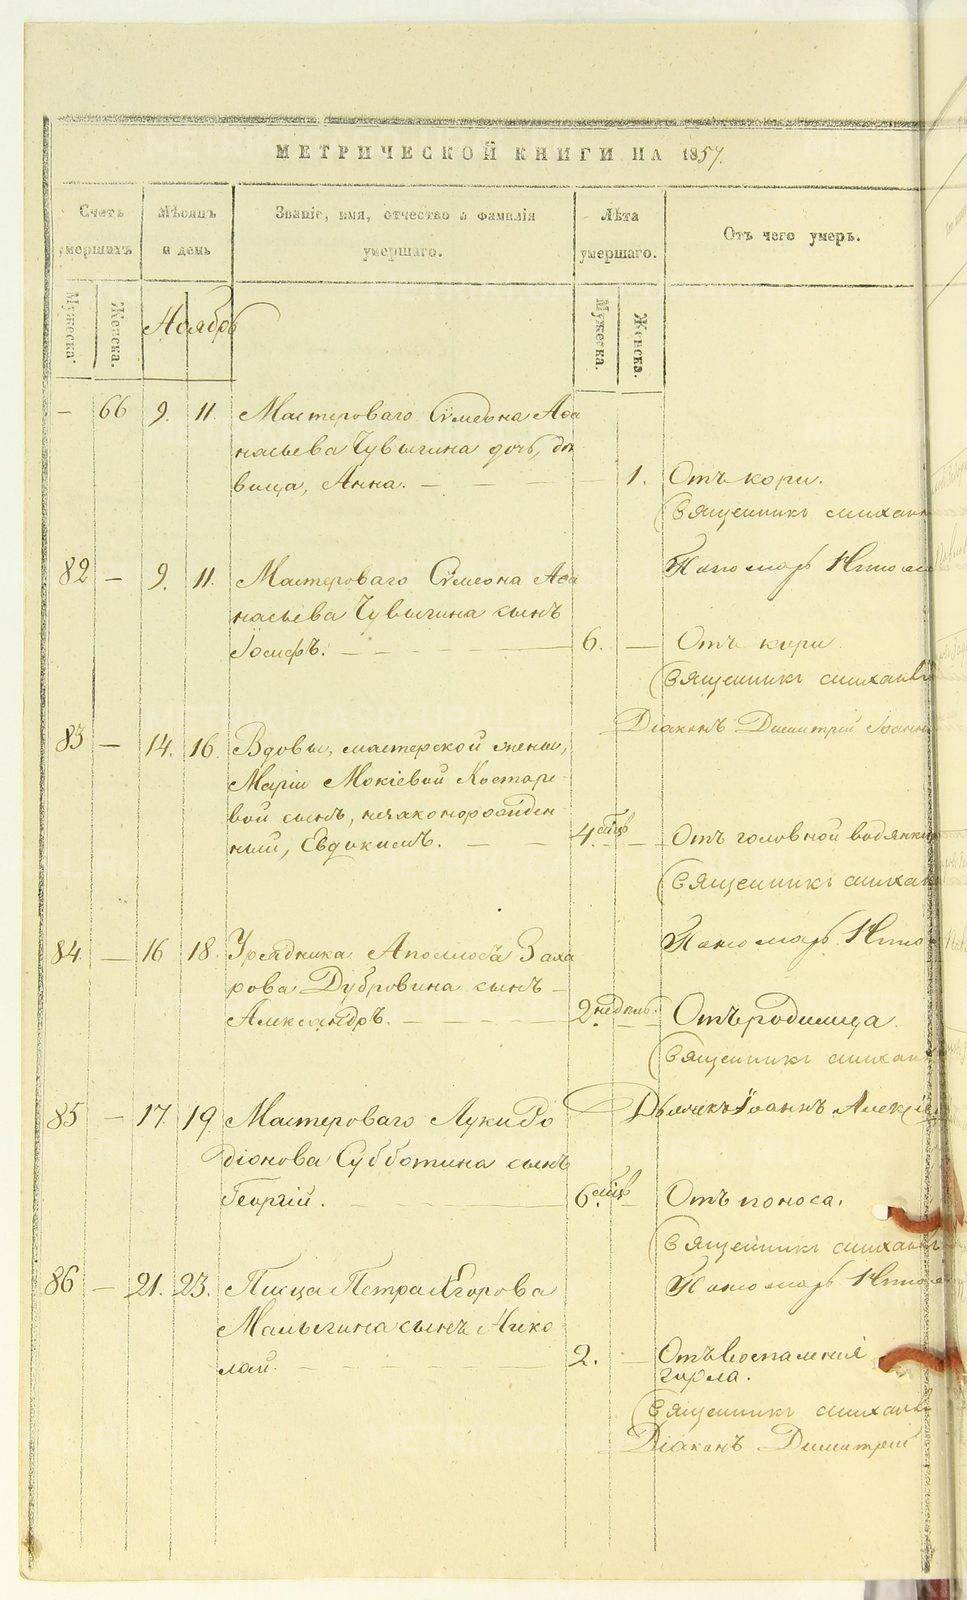 МЕТРИЧЕСКОЙ КНИГИ НА 1857.
Счетъ умершихъ
Мѣсяцъ и день
Званіе, имя, отчество и фамилія умершаго.
Лѣта умершаго.
Отъ чего умеръ.
Мужеска. Женска.
Ноябрь
Мужеска. Женска.
— 66 9. 11. Мастероваго Сѵмеона Аѳа
насьева Чувыгина дочь, дѣ
вица, Анна. — 1. Отъ кори.
Священникъ Михаил
82 — 9. 11. Мастероваго Сѵмеона Аѳа
Пономарь
насьева Чувыгина сынъ
Іосифъ. — 6. — Отъ кори.
Священникъ Михаил
Діаконъ Димитрій Іоанн
83 — 14. 16. Вдовы, мастерской жены,
Маріи Мокіевой Костаре
вой сынъ, незаконорожден
ный, Евдокимъ. — 4. мѣс. — Отъ головной водянки
Священникъ Михаил
84. — 16 18. Урядника Аполлоса Заха
Пономарь
рова Дубровина сынъ
Александръ. — 2 недѣль. — Отъ родимца.
Священникъ Михаил
85 — 17. 19. Мастероваго Луки Ро
Дьячекъ Іоаннъ Алексѣ
діонова Субботина сынъ
Георгій. — 6. мѣс. — Отъ поноса.
Священникъ Михаил
86 — 21. 23. Писца Петра Егорова
Пономарь
Малыгина сынъ Нико
лай. — 2. — Отъ воспаленія
горла.
Священникъ Михаил
Діаконъ Димитрій